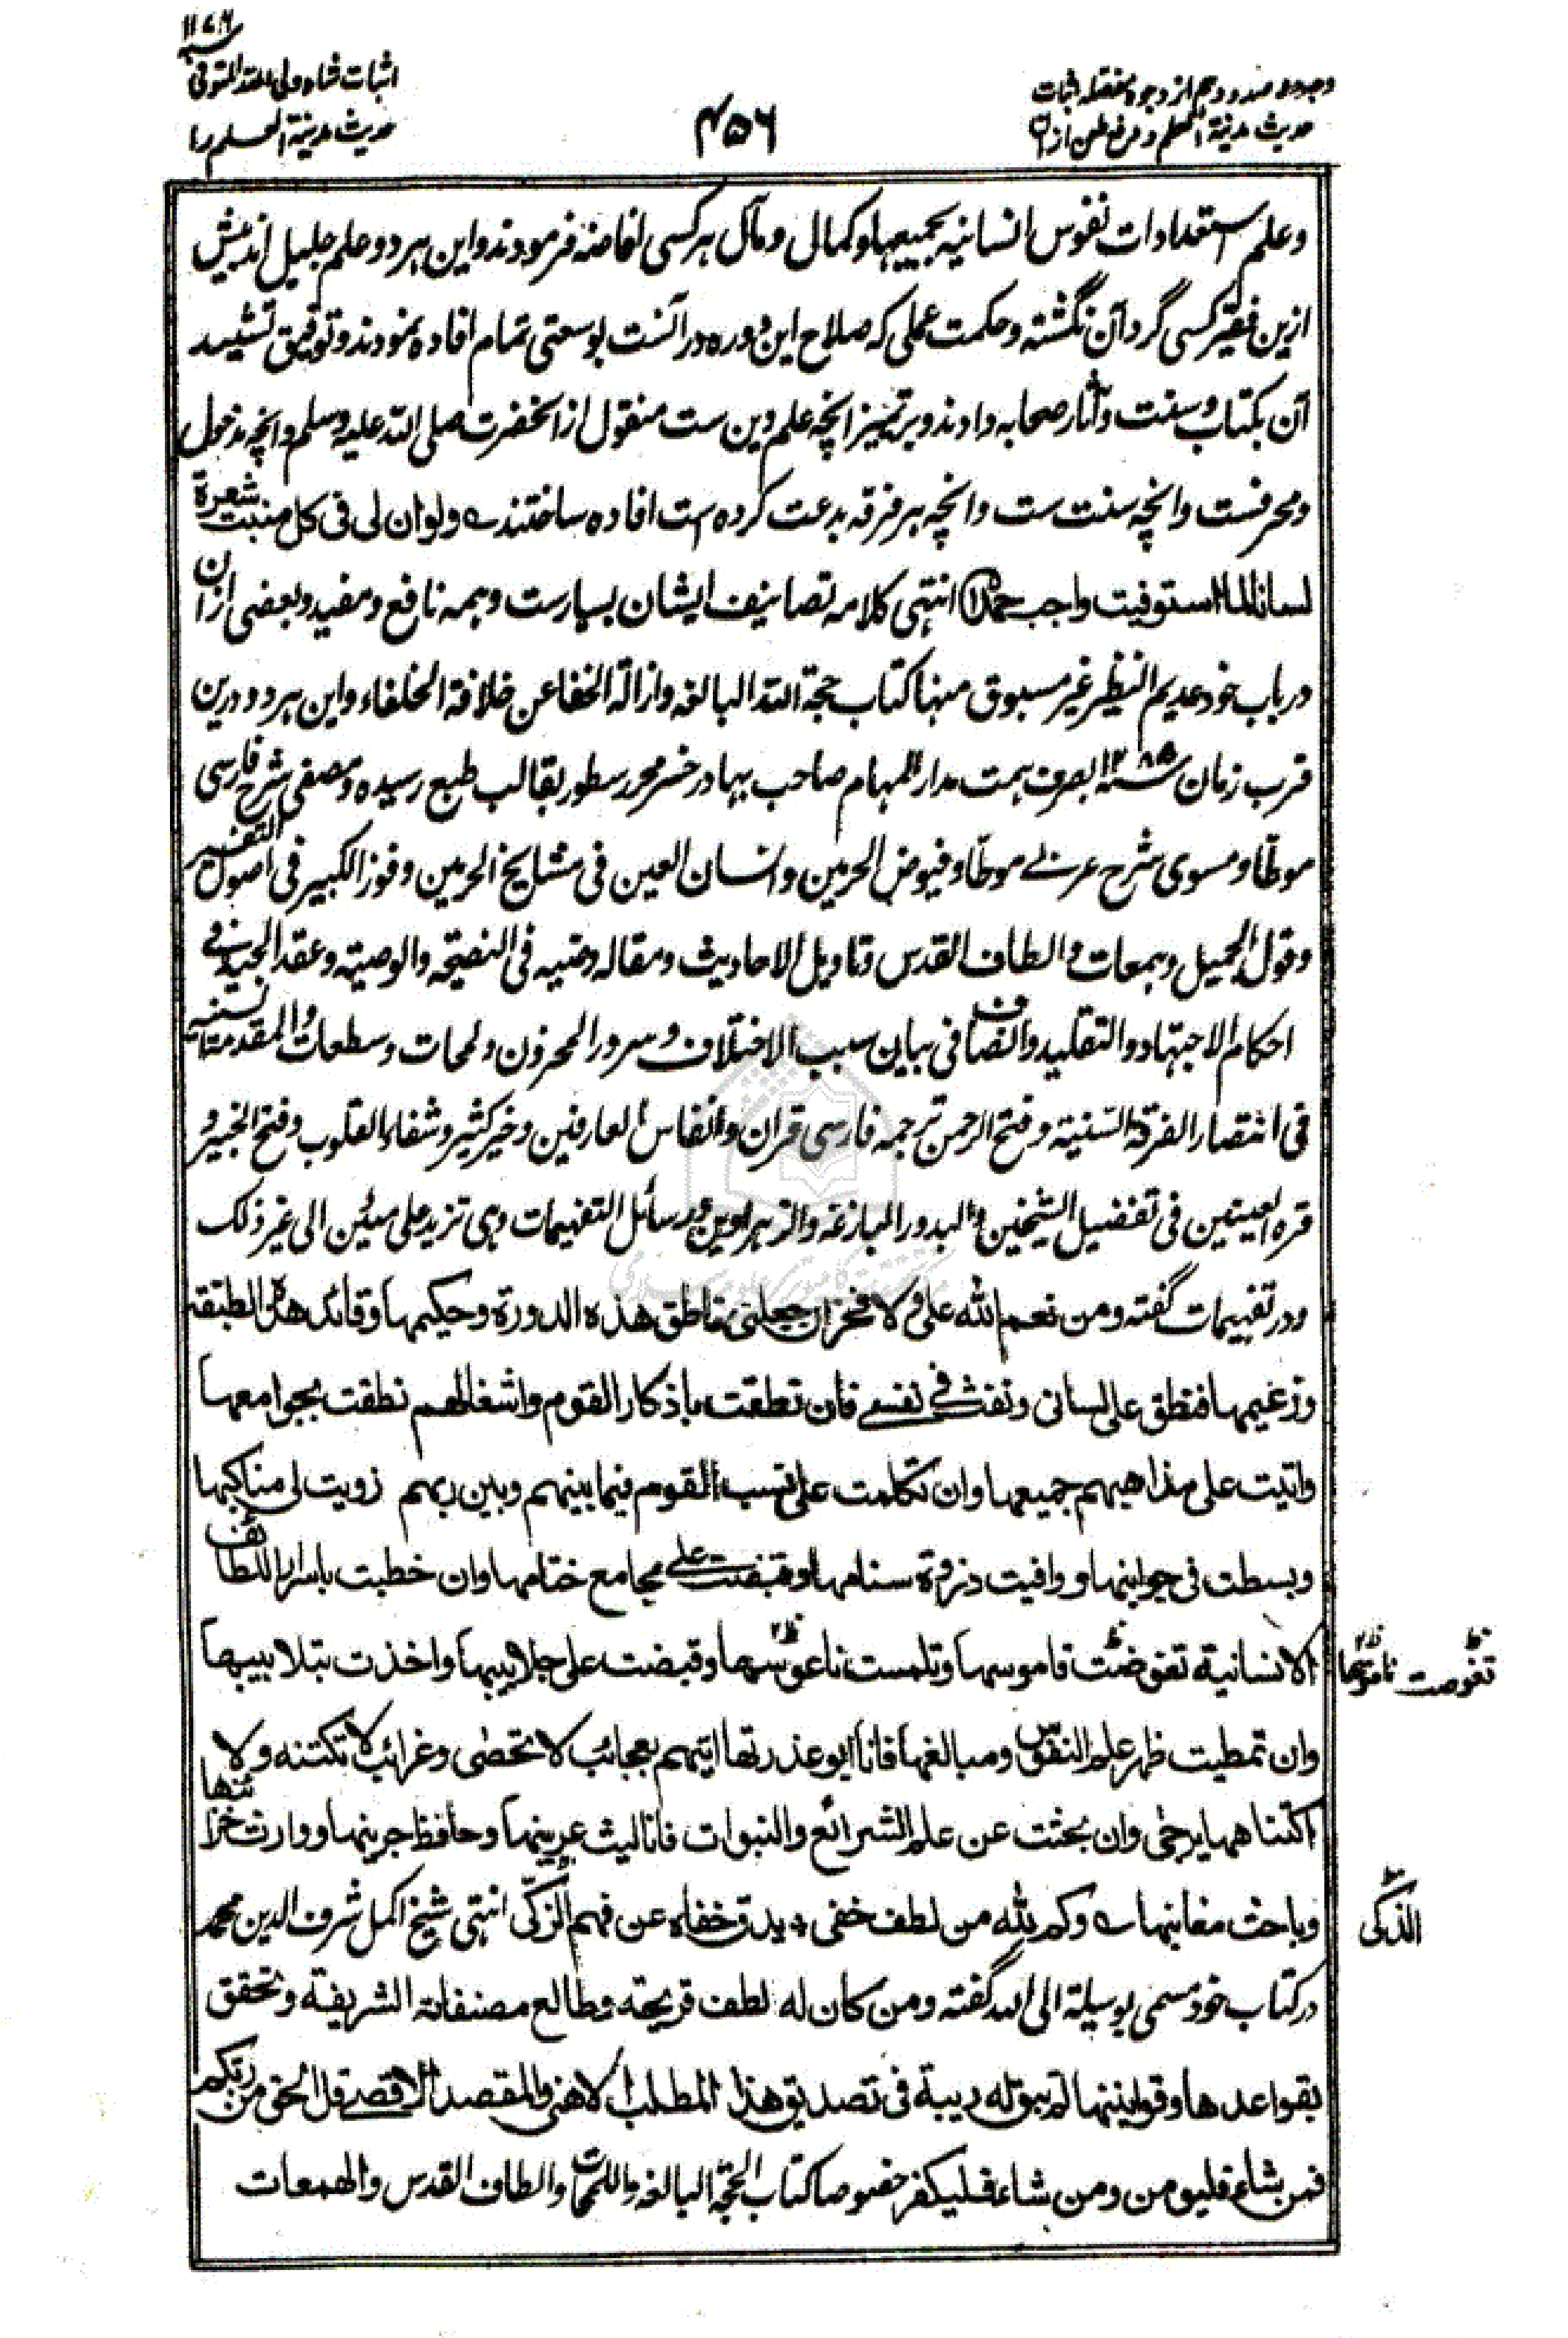 وجه صد و دهم از وجوه مفصله اثبات
حدیث مدینة العلم و من طعن ازان
۴۵۶
سنه ۱۱۷۶
اثبات شاه ولی الله المتوفی
حدیث مدینة العلم را
و علم استعدادات نفوس انسانیه بجمیعها و کمال و مآل هر کسی افاضه فرمودند و این هر دو علم جلیل اند پیش
ازین فقیر کسی گرد آن نگشته و حکمت عملی که صلاح این دوره در آنست بوسعتی تمام افاده نمودند و توفیق تشیید
آن بکتاب و سنت و آثار صحابه دادند و بر تمییز انچه علم دین ست منقول از آنحضرت صلی الله علیه وسلم و انچه مدخول
و محرفست و انچه سنت ست و انچه هر فرقه بدعت کرده ست افاده ساختند ے ولو ان لی فی کل منبت شعرة
لسانا لما استوفیت واجب حمده انتهی کلامه تصانیف ایشان بسیارست و همه نافع و مفید و بعضی ازان
در باب خود عدیم النظیر غیر مسبوق منها کتاب حجة الله البالغه و ازالة الخفا عن خلافة الخلفاء و این هر دو درین
قرب زمان سنه ۱۲۸۵ بصرف همت مدار المهام صاحب بهادر خسر محرر سطور بقالب طبع رسیده و مصفی شرح فارسی
موطأ و مسوی شرح عربی موطأ و فیوض الحرمین و انسان العین فی مشایخ الحرمین و فوز الکبیر فی اصول التفسیر
و قول الجمیل و همعات و الطاف القدس و تاویل الاحادیث و مقاله وضیه فی النصیحة والوصیة و عقد الجید فی
احکام الاجتهاد والتقلید و انصاف فی بیان سبب الاختلاف و سرور المحزون و لمحات و سطعات و المقدمة السنیه
فی انتصار الفرقة السنیة و فتح الرحمن ترجمه فارسی قران و انفاس العارفین و خیر کثیر و شفاء القلوب و فتح الخبیر و
قرة العینین فی تفضیل الشیخین و البدور البازغه والزهراوین و رسائل التفهیمات و هی تزید علی مئین الی غیر ذلک
و در تفهیمات گفته و من نعم الله علی و لا فخر ان جعلنی ناطق هذه الدورة و حکیمها و قائد هذه الطبقة
و زعیمها فنطق علی لسانی و نفث فی نفسی فان نطقت باذکار القوم و اشغالهم نطقت بجوامعها
و اتیت علی مذاهبهم جمیعها و ان تکلمت علی نسب القوم فیما بینهم و بین ربهم زویت لی مناکبها
و بسطت فی جوانبها و وافیت ذروة سنامها و قبضت علی مجامع ختامها و ان خطبت باسرار اللطائف
الانسانیة تغوضت قاموسها و تلمست ناعوسها و قبضت علی جلابیبها و اخذت بتلابیبها
تغوصت ناموسها
و ان تمطیت ظهر علم النفوس و مبالغها فانا ابو عذرتها اتیتهم بعجائب لا تحصی و غرائب لا تکتنه و لا
اکتناهها یرجی و ان بحثت عن علم الشرائع والنبوات فانا لیث عرینها و حافظ جرینها و وارث خزائنها
و باحث مغابنها ے و کم لله من لطف خفی ٭ یدق خفاه عن فهم الزکی انتهی شیخ اکمل شرف الدین محمد
الذکی
در کتاب خود مسمی بوسیلة الی الله گفته و من کان له لطف قریحته و طالع مصنفاته الشریفة و تحقق
بقواعدها و قوانینها لم یبق له ریبة فی تصدیق هذا المطلب الاهنی والمقصد الاقصی قل الحق من ربکم
فمن شاء فلیؤمن و من شاء فلیکفر خصوصا کتاب الحجة البالغه واللمحات و الطاف القدس والهمعات